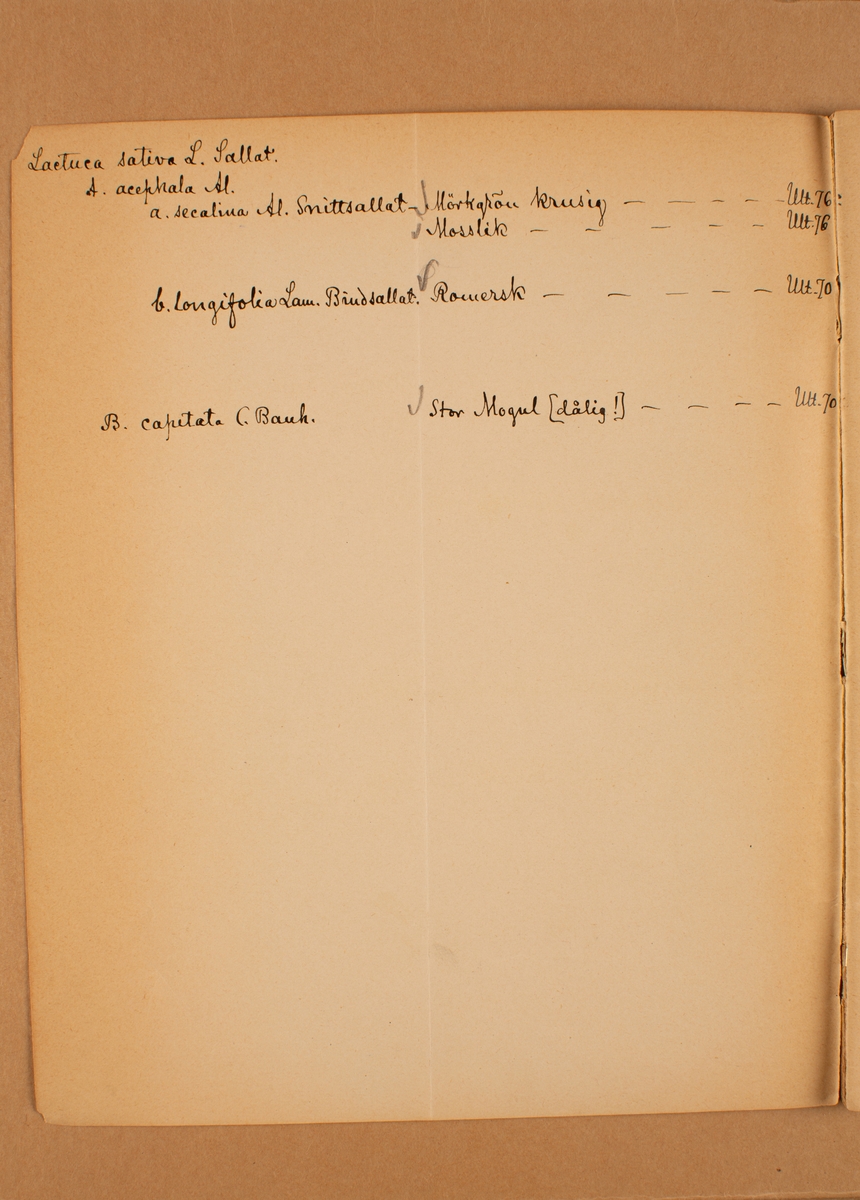 Lactuca sativa L. Sallat.
A. acephala Al.
a. secalina Al. Snittsallat - √ Mörkgrön krusig — — — — — Utt. 76:
√ Mosslik — — — — — Utt. 76
b. longifolia Lam. Bindsallat. √ Romersk — — — — — Utt. 70
B. capitata C. Bauh. √ Stor Mogul [dålig!] — — — — Utt. 70